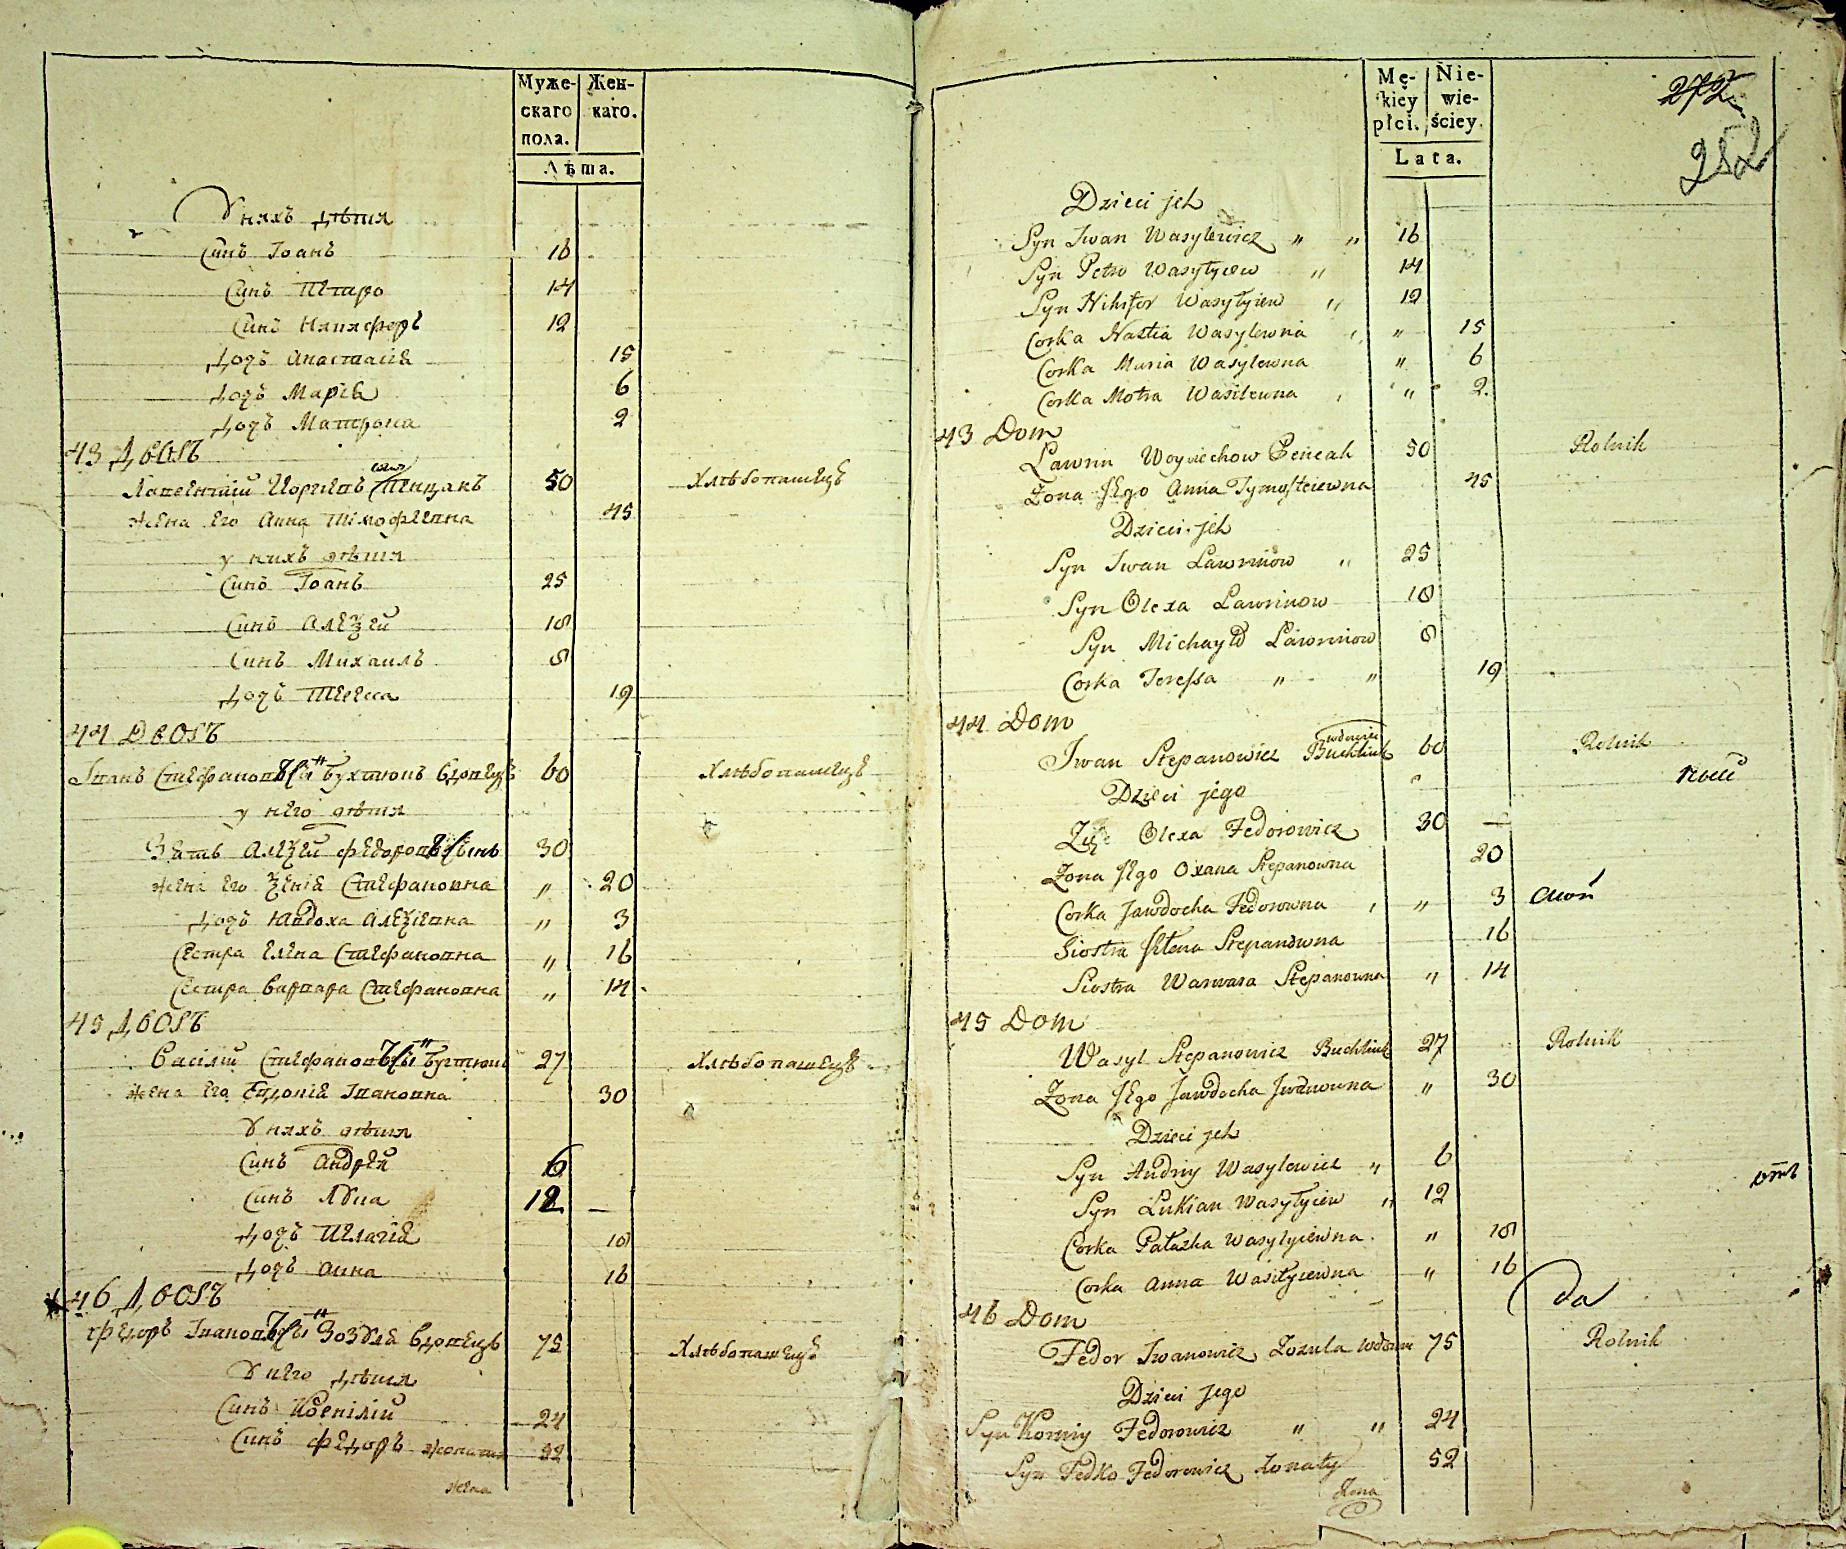 Муже-
скаго
пола.
Жен-
каго.
Лѣта.
У нихъ дѣти
Синъ Іоанъ 16
Синъ Петро 14
Синъ Никифоръ 12
Дочъ Анастасіа 15
Дочъ Маріа 6
Дочъ Матрона 2
43 Дворъ
Лаврентий 50 Хлѣбопашецъ
жена его Анна Тімофѣевна 45
у нихъ дѣти
Синъ Іоанъ 25
Синъ Алеѯей 18
Синъ Михаилъ 8
Дочъ Тереса 19
44 Дворъ
Іванъ Стефановъ Бухтюкъ вдовецъ 60 Хлѣбопашецъ
у него дѣти
Зять Алеѯей Федоровъ 30
жена его Ѯеніа Стефановна " 20
Дочъ Явдоха Алеѯіевна " 3
Сестра Елена Стефановна " 16
Сестра Варвара Стефановна " 14
45 Дворъ
Василій Стефановъ Бухтюкъ 27 Хлѣбопашецъ
жена его Евдокіа Івановна 30
У нихъ дѣти
Синъ Андрей 6
Синъ Лука 12
Дочъ Пелагіа 18
Дочъ Анна 16
46 Дворъ
Федоръ Івановъ Зозуля вдовецъ 75 Хлѣбопашецъ
У него дѣти
Синъ Корнілій 24
Синъ Федоръ жонатий 52
жена
Mę-
skiey
płci.
Nie-
wie-
ściey.
Lata.
272
252
Dzieci jch
Syn Iwan Wasylewicz " " 16
Syn Petro Wasyłyiew " 14
Syn Nikifor Wasyłyiew " 12
Corka Nastia Wasylewna " 15
Corka Maria Wasylewna " 6
Corka Motra Wasilewna " 2
43 Dom
Lawrin Woyciechow Pencak 50 Rolnik
Żona Jego Anna Tymofteiewna 45
Dzieci jch
Syn Iwan Lawrinow " 25
Syn Olexa Lawrinow 18
Syn Michayło Lawrinow 8
Corka Teressa " " 19
44 Dom
Iwan Stepanowicz Buchtiuk wdowiec 60 Rolnik
Dzieci jego
Zięć Olexa Fedorowicz 30
Żona Jego Oxana Stepanowna 20
Corka Jawdocha Fedorowna " 3
Siostra Jełena Stepanowna 16
Siostra Warwara Stepanowna " 14
45 Dom
Wasyl Stepanowicz Buchtiuk 27 Rolnik
Żona Jego Jawdocha Jwanowna " 30
Dzieci jch
Syn Andriy Wasylewicz " 6
Syn Lukian Wasyłyiew " 12
Corka Pałażka Wasyłyiewna " 18
Corka Anna Wasiłyiewna " 16
46 Dom
Fedor Iwanowicz Zozula wdowiec 75 Rolnik
Dzieci jego
Syn Korniy Fedorowicz " " 24
Syn Fedko Fedorowicz żonaty 52
Żona